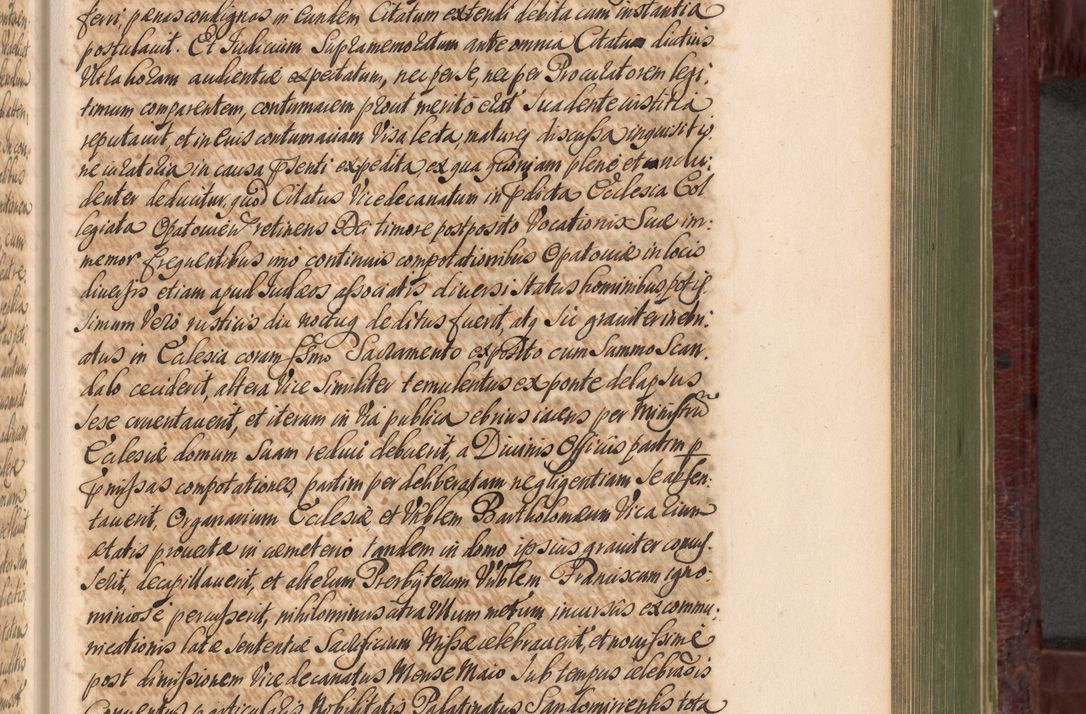 ferri, pœnas condignas in eundem Citatum extendi debita cum instantia
postulavit. Et Iudicium Supramemoratum ante omnia Citatum dictius
Ultra horam audientiæ expectatum, nec per se, nec per Procuratorem legi:
timum comparentem, contumacem prout merito erat suadente iustitia
reputavit, et in eius contumaciam Visa lecta, matureq discussa inquisitio
ne curatoria in causa pſenti expedita ex qua quoniam plene et conclu:
denter deducitur, quod Citatus Vicedecanatum in pdicta Ecclesia Col
legiata Opatovien retinens Dei timore postposito Vocationis Suæ im:
memor frequentibus imo continuis compotationibus Opatoviæ in locis
diversis etiam apud Iudæos aſsociatis diversi Status hominibus potiſ
simum Vero rusticis diu noctuq deditus fuerit, atq Sic graviter inebri:
atus in Ecclesia coram Sſmo Sacramento exposito cum Summo Scan:
dalo ceciderit, altera Vice Similiter temulentus ex ponte delapsus
sese cruentaverit, et iterum in Via publica ebrius iacens per Ministrū
Ecclesiæ domum Suam reduci debuerit, a Divinis Officiis partim p
pmiſsas compotationes, partim per deliberatam negligentiam Se absen:
taverit, Organarium Ecclesiæ et Vnblem Bartholomæum Vicarium
ætatis provectæ in cœmeterio tandem in domo ipsius graviter concuſ
Serit, decapillaverit, et alterum Presbyterum Vnblem Franciscum igno:
miniose percuſserit, nihilominus citra Ullum metum incursûs excommu:
nicationis latæ Sententiæ Sacrificium Miſsæ celebraverit, et noviſsime
post dimiſsionem Vicedecanatus Mense Maio Sub tempus celebraōis
Conventus particularis Nobilitatis Palatinatus Sandomiriensis tota